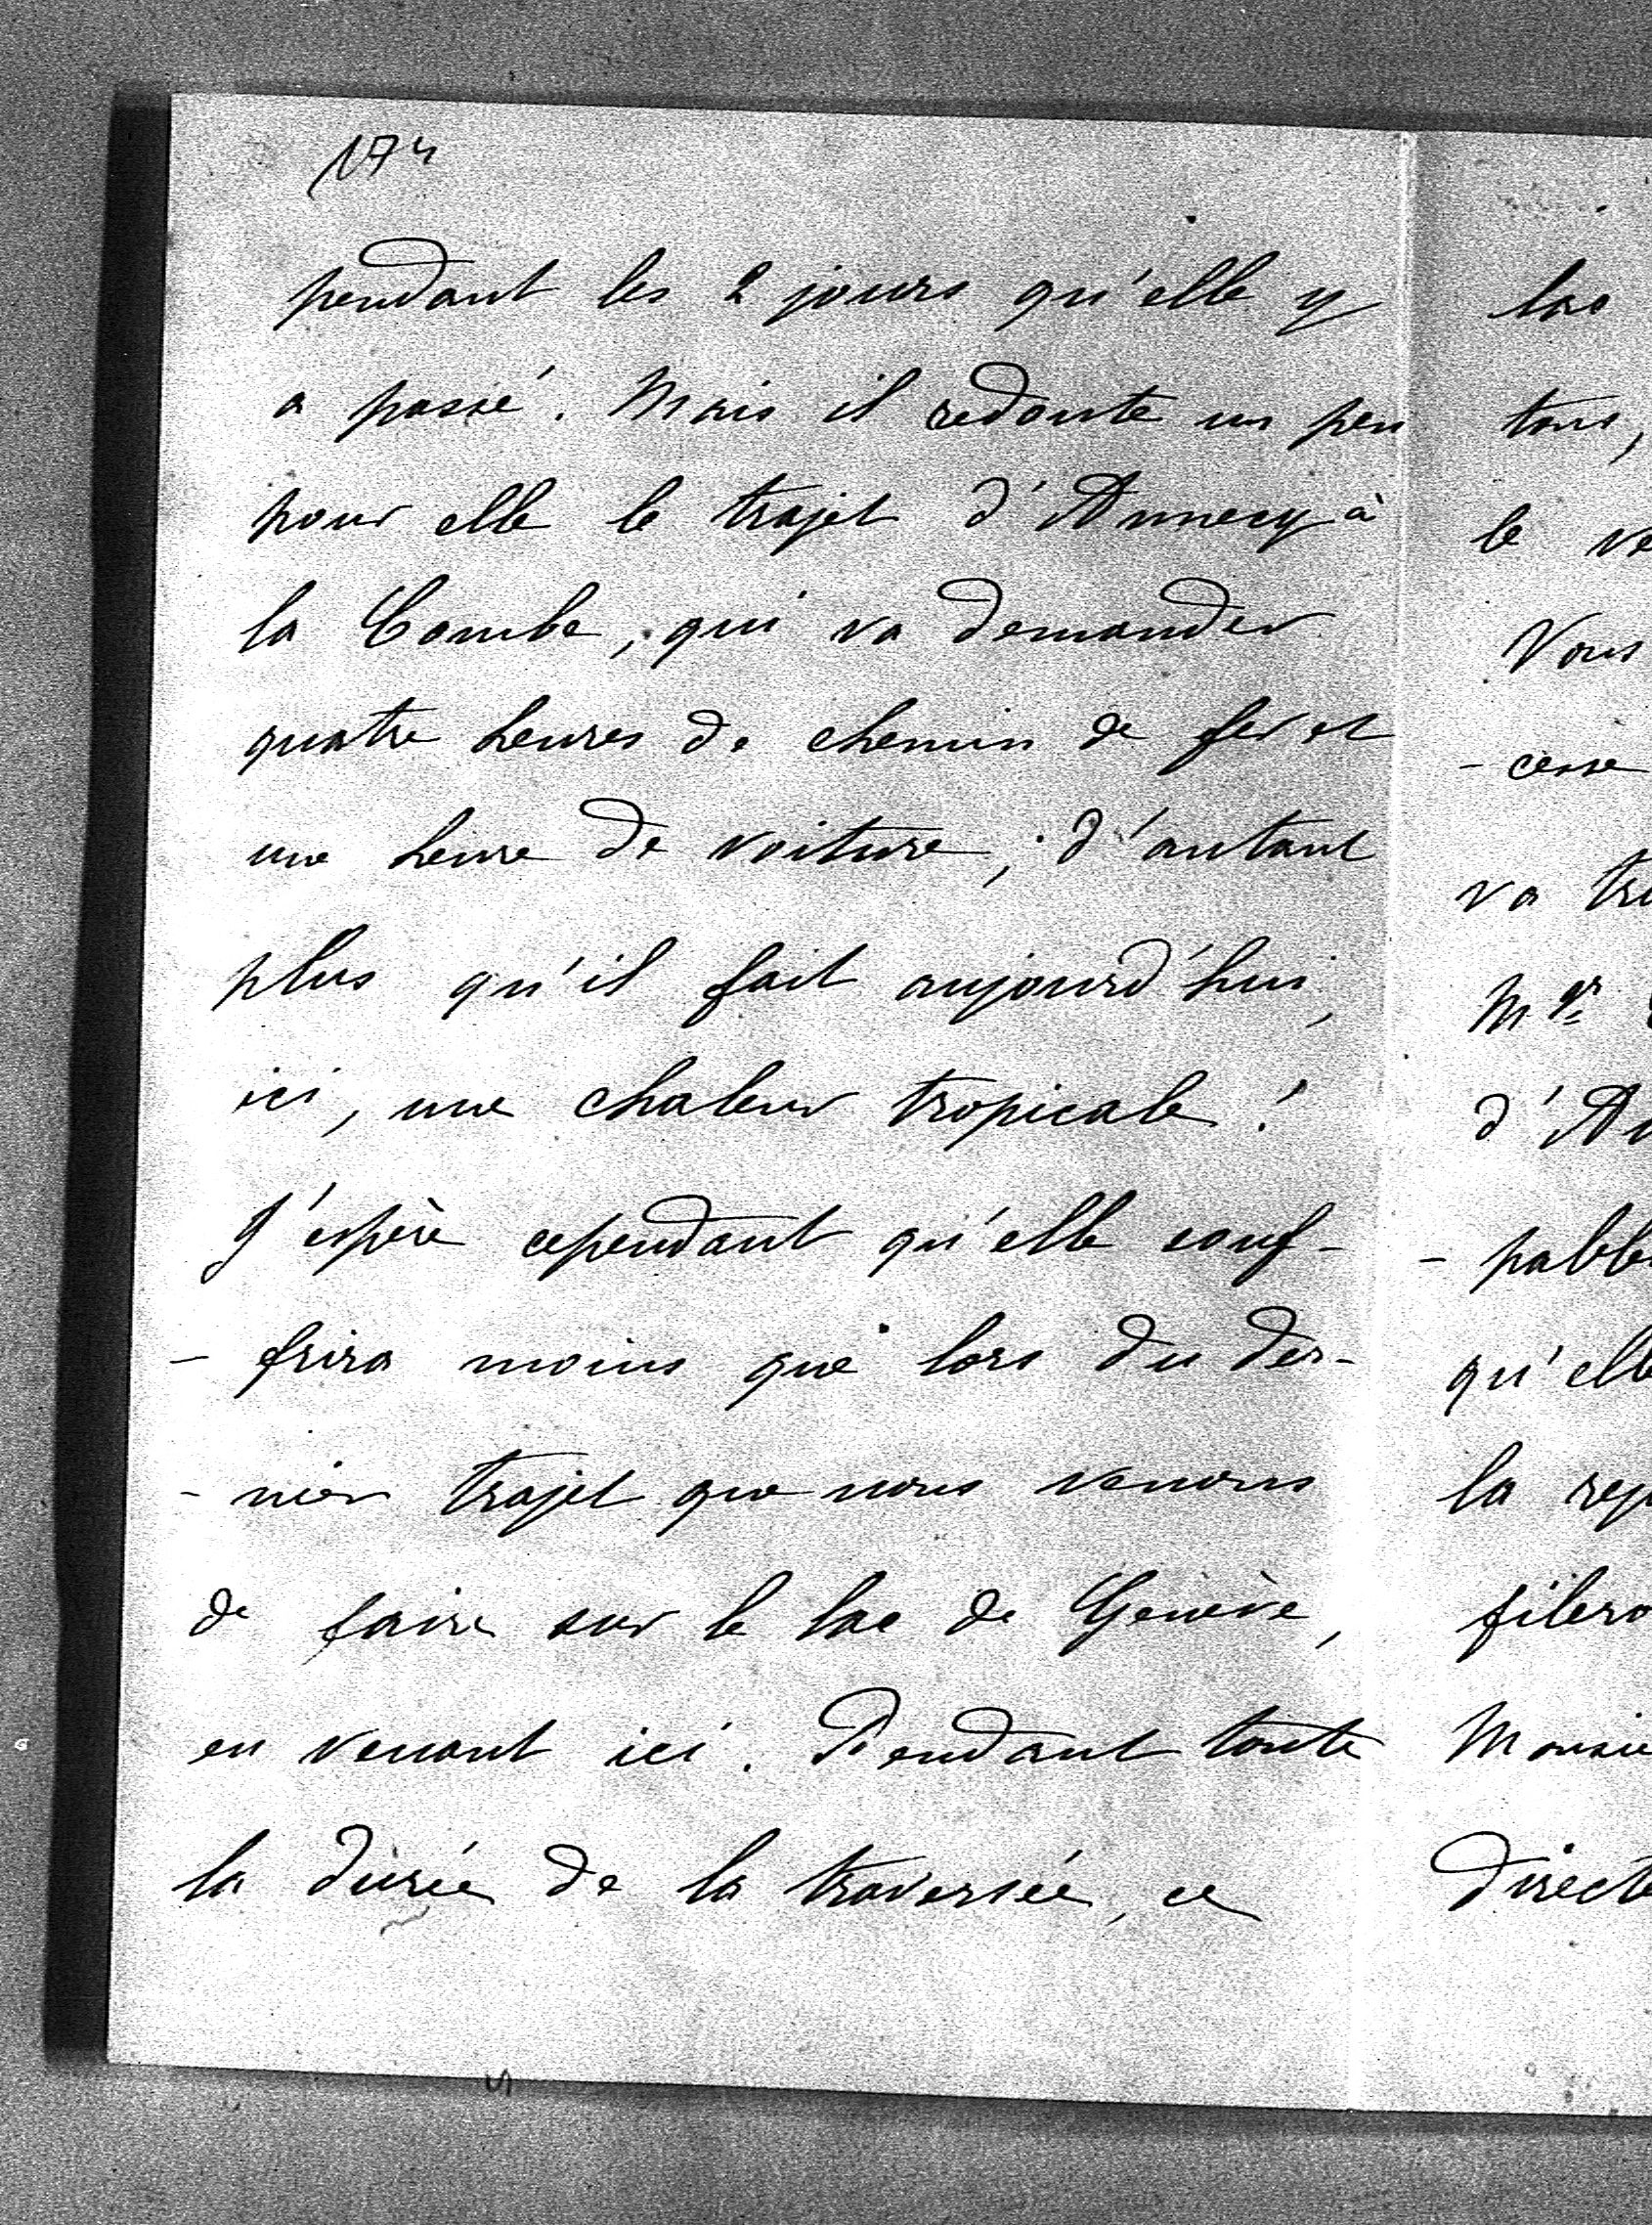 174
pendant les 2 jours qu'elle y
a passé. Mais il redoute un peu
pour elle le trajet d'Annecy à
la Combe, qui va demander
quatre heures de chemin de fer et
une heure de voiture; d'autant
plus qu'il fait aujourd'hui,
ici, une chaleur tropicale !
J'espère cependant qu'elle souf-
- frira moins que lors du der-
- nier trajet que nous venons
de faire sur le lac de Genève,
en venant ici. Pendant toute
la durée de la traversée, ce
lac
tous,
le ve
Vous
- cesse
va tr
Mgr
d'An
- pable
qu'elle
la rep
filero
Monsie
Directe